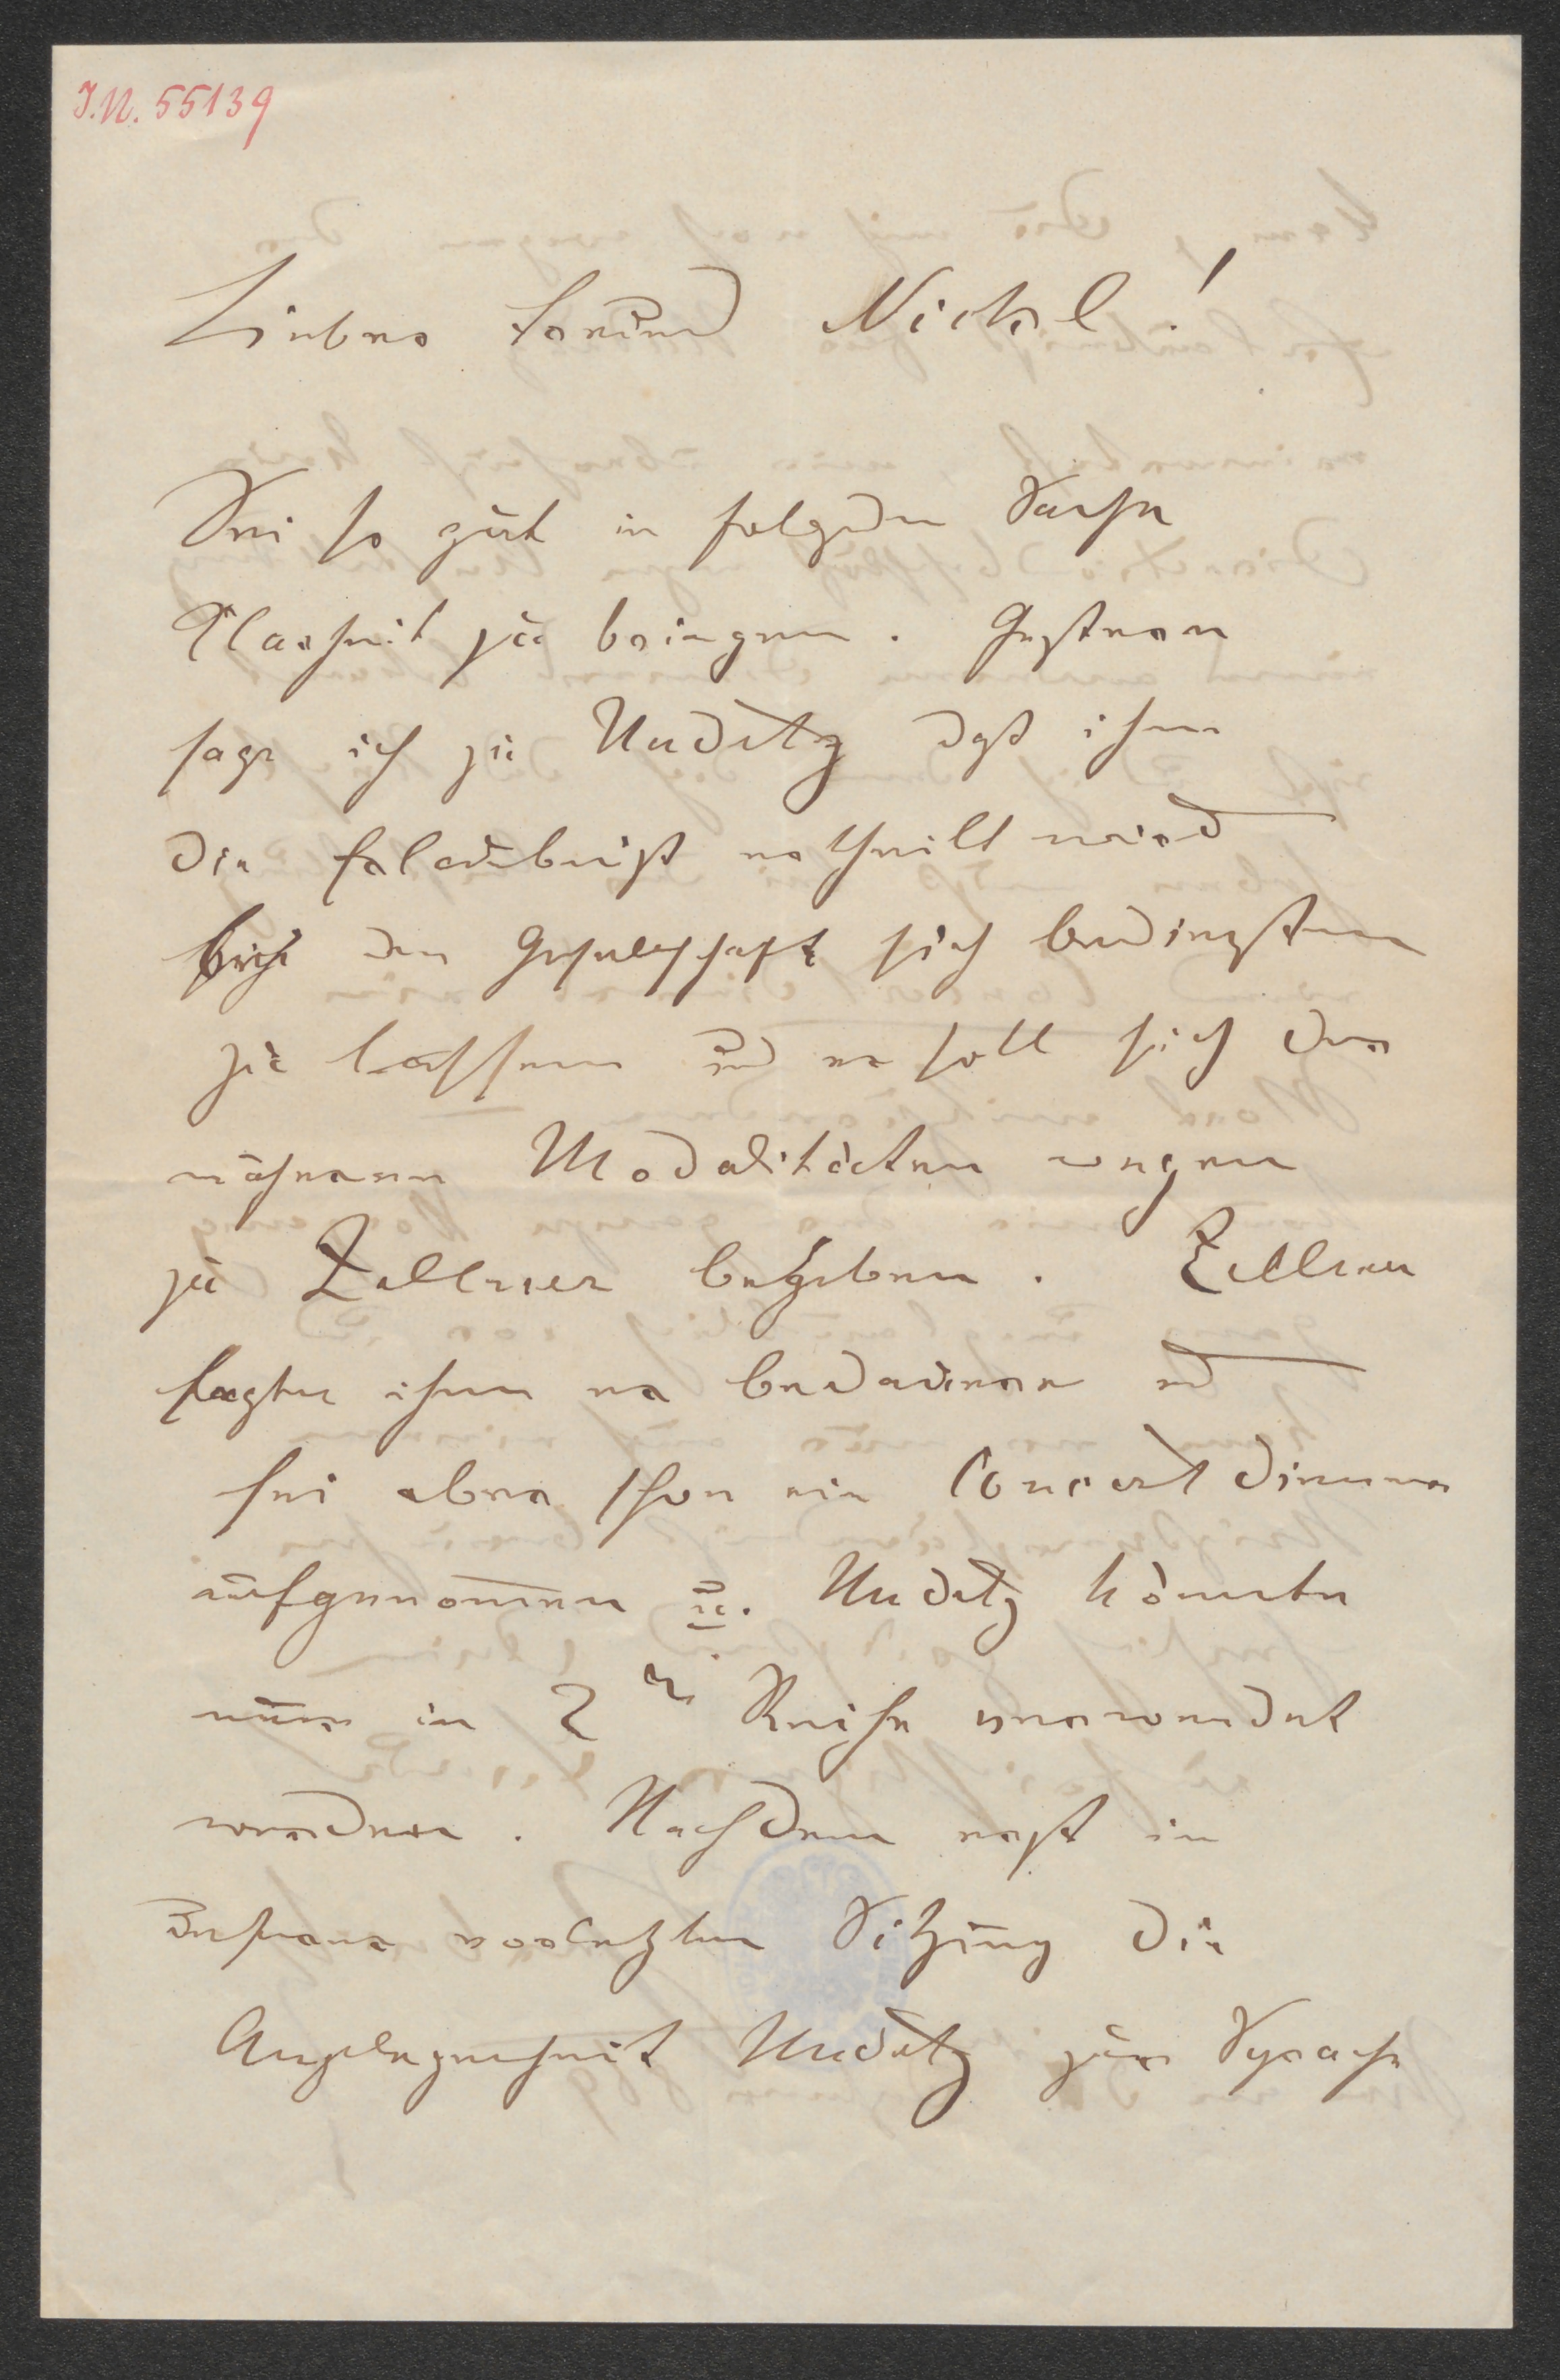 I.N. 55139
Lieber Freund Nickel!
Sei so gut in folgender Sache
Klarheit zu bringen. Gestern
sage ich zu Nuditz daß ihm
die Erlaubniß ertheilt wird
bei der Gesellschaft sich bedinsten
zu lassen und er soll sich der
näheren Modalitäten wegen
zu Zellner begeben. Zellner
sagte ihm er bedauere es
sei aber schon ein Concertdiener
aufgenommen u. Nuditz könnte
nur in 2er Reihe verwendet
werden. Nachdem erst in
unserer vorletzten Sitzung die
Angelegenheit Nuditz zur Sprache